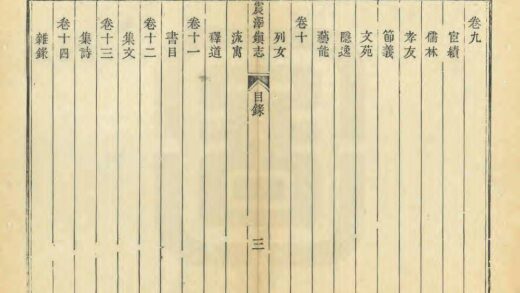 卷九
宦績
儒林
孝友
節義
文苑
隱逸
藝能
卷十
列女
震澤鎮志
目錄
三
流寓
釋道
卷十一
書目
卷十二
集文
卷十三
集詩
卷十四
雜錄